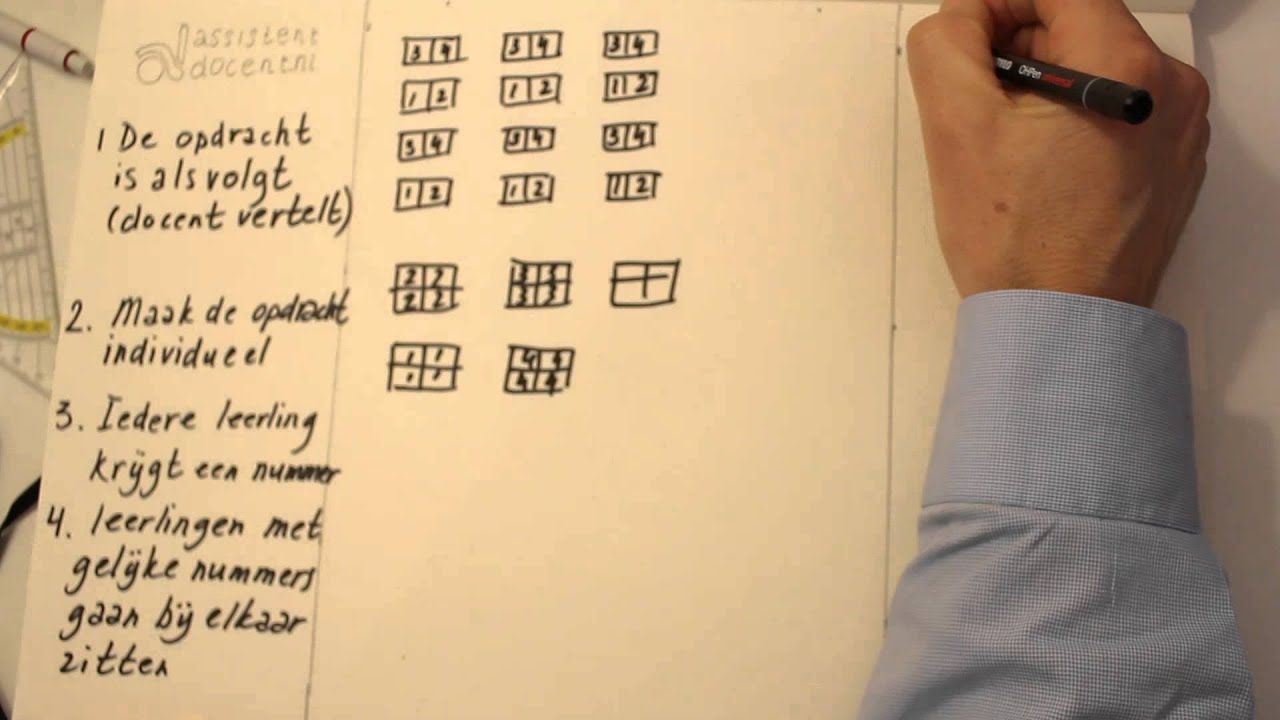 assistent
docent.nl
1 De opdracht
is als volgt
(docent vertelt)
2. Maak de opdracht
individueel
3. Iedere leerling
krijgt een nummer
4. leerlingen met
gelijke nummers
gaan bij elkaar
zitten
3 4 3 4 3 4
1 2 1 2 1 2
3 4 3 4 3 4
1 2 1 2 1 2
2 2 3 3
2 2 3 3
1 1 4 4
1 1 4 4
OHPen universal